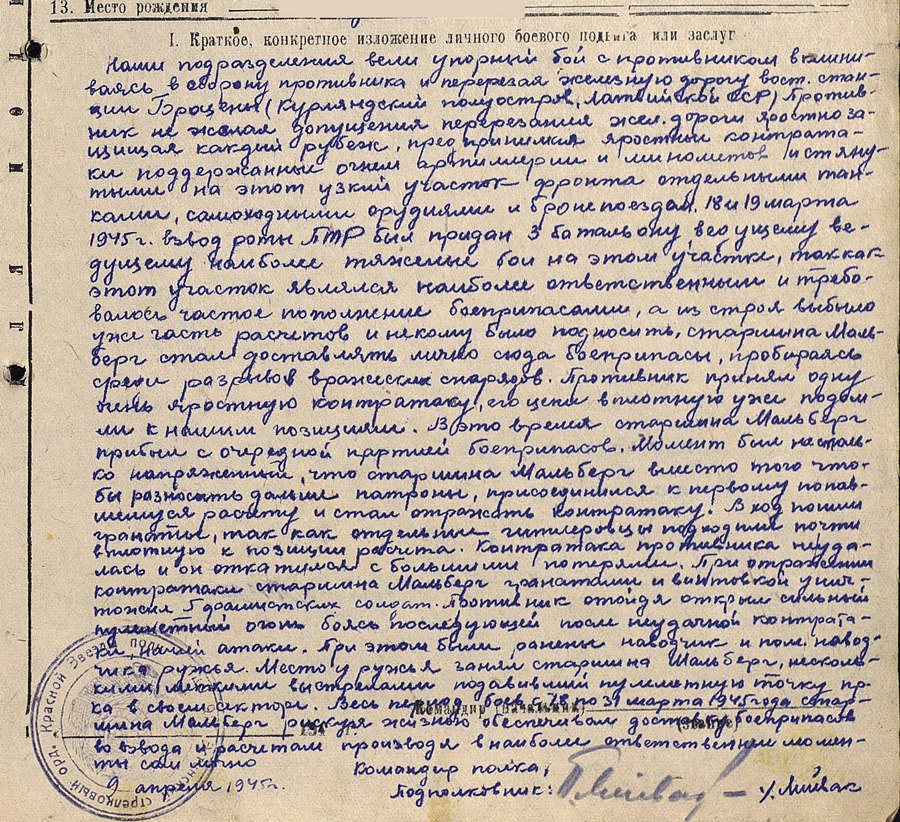 13. Место рождения
I. Краткое, конкретное изложение личного боевого подвига или заслуг
Наши подразделения вели упорный бой с противником вклини-
ваясь в оборону противника и перерезая железную дорогу вост. стан-
ции Броцены (Курляндский полуостров, Латвийской ССР) Против-
ник не желая допущения перерезания жел. дороги яростно за-
щищая каждый рубеж, предпринимал яростные контрата-
ки поддержанные огнем артиллерии и минометов и стяну-
тыми на этот узкий участок фронта отдельными тан-
ками, самоходными орудиями и бронепоездом. 18 и 19 марта
1945 г. взвод роты ПТР был придан 3 батальону ведущему ве-
дущему наиболее тяжелые бои на этом участке, так как
этот участок являлся наиболее ответственным и требо-
валось частое пополнение боеприпасами, а из строя выбыло
уже часть расчетов и некому было подносить, старшина Маль-
берг стал доставлять лично сюда боеприпасы, пробираясь
среди разрывов вражеских снарядов. Противник принял одну
очень яростную контратаку, его цепи вплотную уже подош-
ли к нашим позициям. В это время старшина Мальберг
прибыл с очередной партией боеприпасов. Момент был настоль-
ко напряженный, что старшина Мальберг вместо того что-
бы разносить дальше патроны, присоединился к первому попав-
шемуся расчету и стал отражать контратаку. В ход пошли
гранаты, так как отдельные гитлеровцы подходили почти
вплотную к позиции расчета. Контратака противника неуда-
лась и он откатился с большими потерями. При отражении
контратаки старшина Мальберг гранатами и винтовкой унич-
тожил фашистских солдат. Противник отойдя открыл сильный
пулеметный огонь боясь последующей после неудачной контрата-
ки нашей атаки. При этом были ранены наводчик и пом. навод-
чика ружья. Место у ружья занял старшина Мальберг, несколь-
кими меткими выстрелами подавивший пулеметную точку пр-
ка в своем секторе. Весь период боев с 18 по 31 марта 1945 года стар-
шина Мальберг рискуя жизнью обеспечивал доставку боеприпасов
во взвода и расчетам производя в наиболее ответственные момен-
ты сам лично
Командир (Начальник)
194 г. (звание)
9 апреля 1945 г. Командир полка,
Подполковник: — /Лийвак
стрелковый орд. Красной Звезды